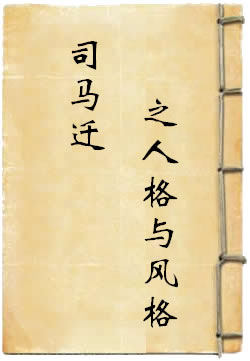 司马迁
之人格与风格